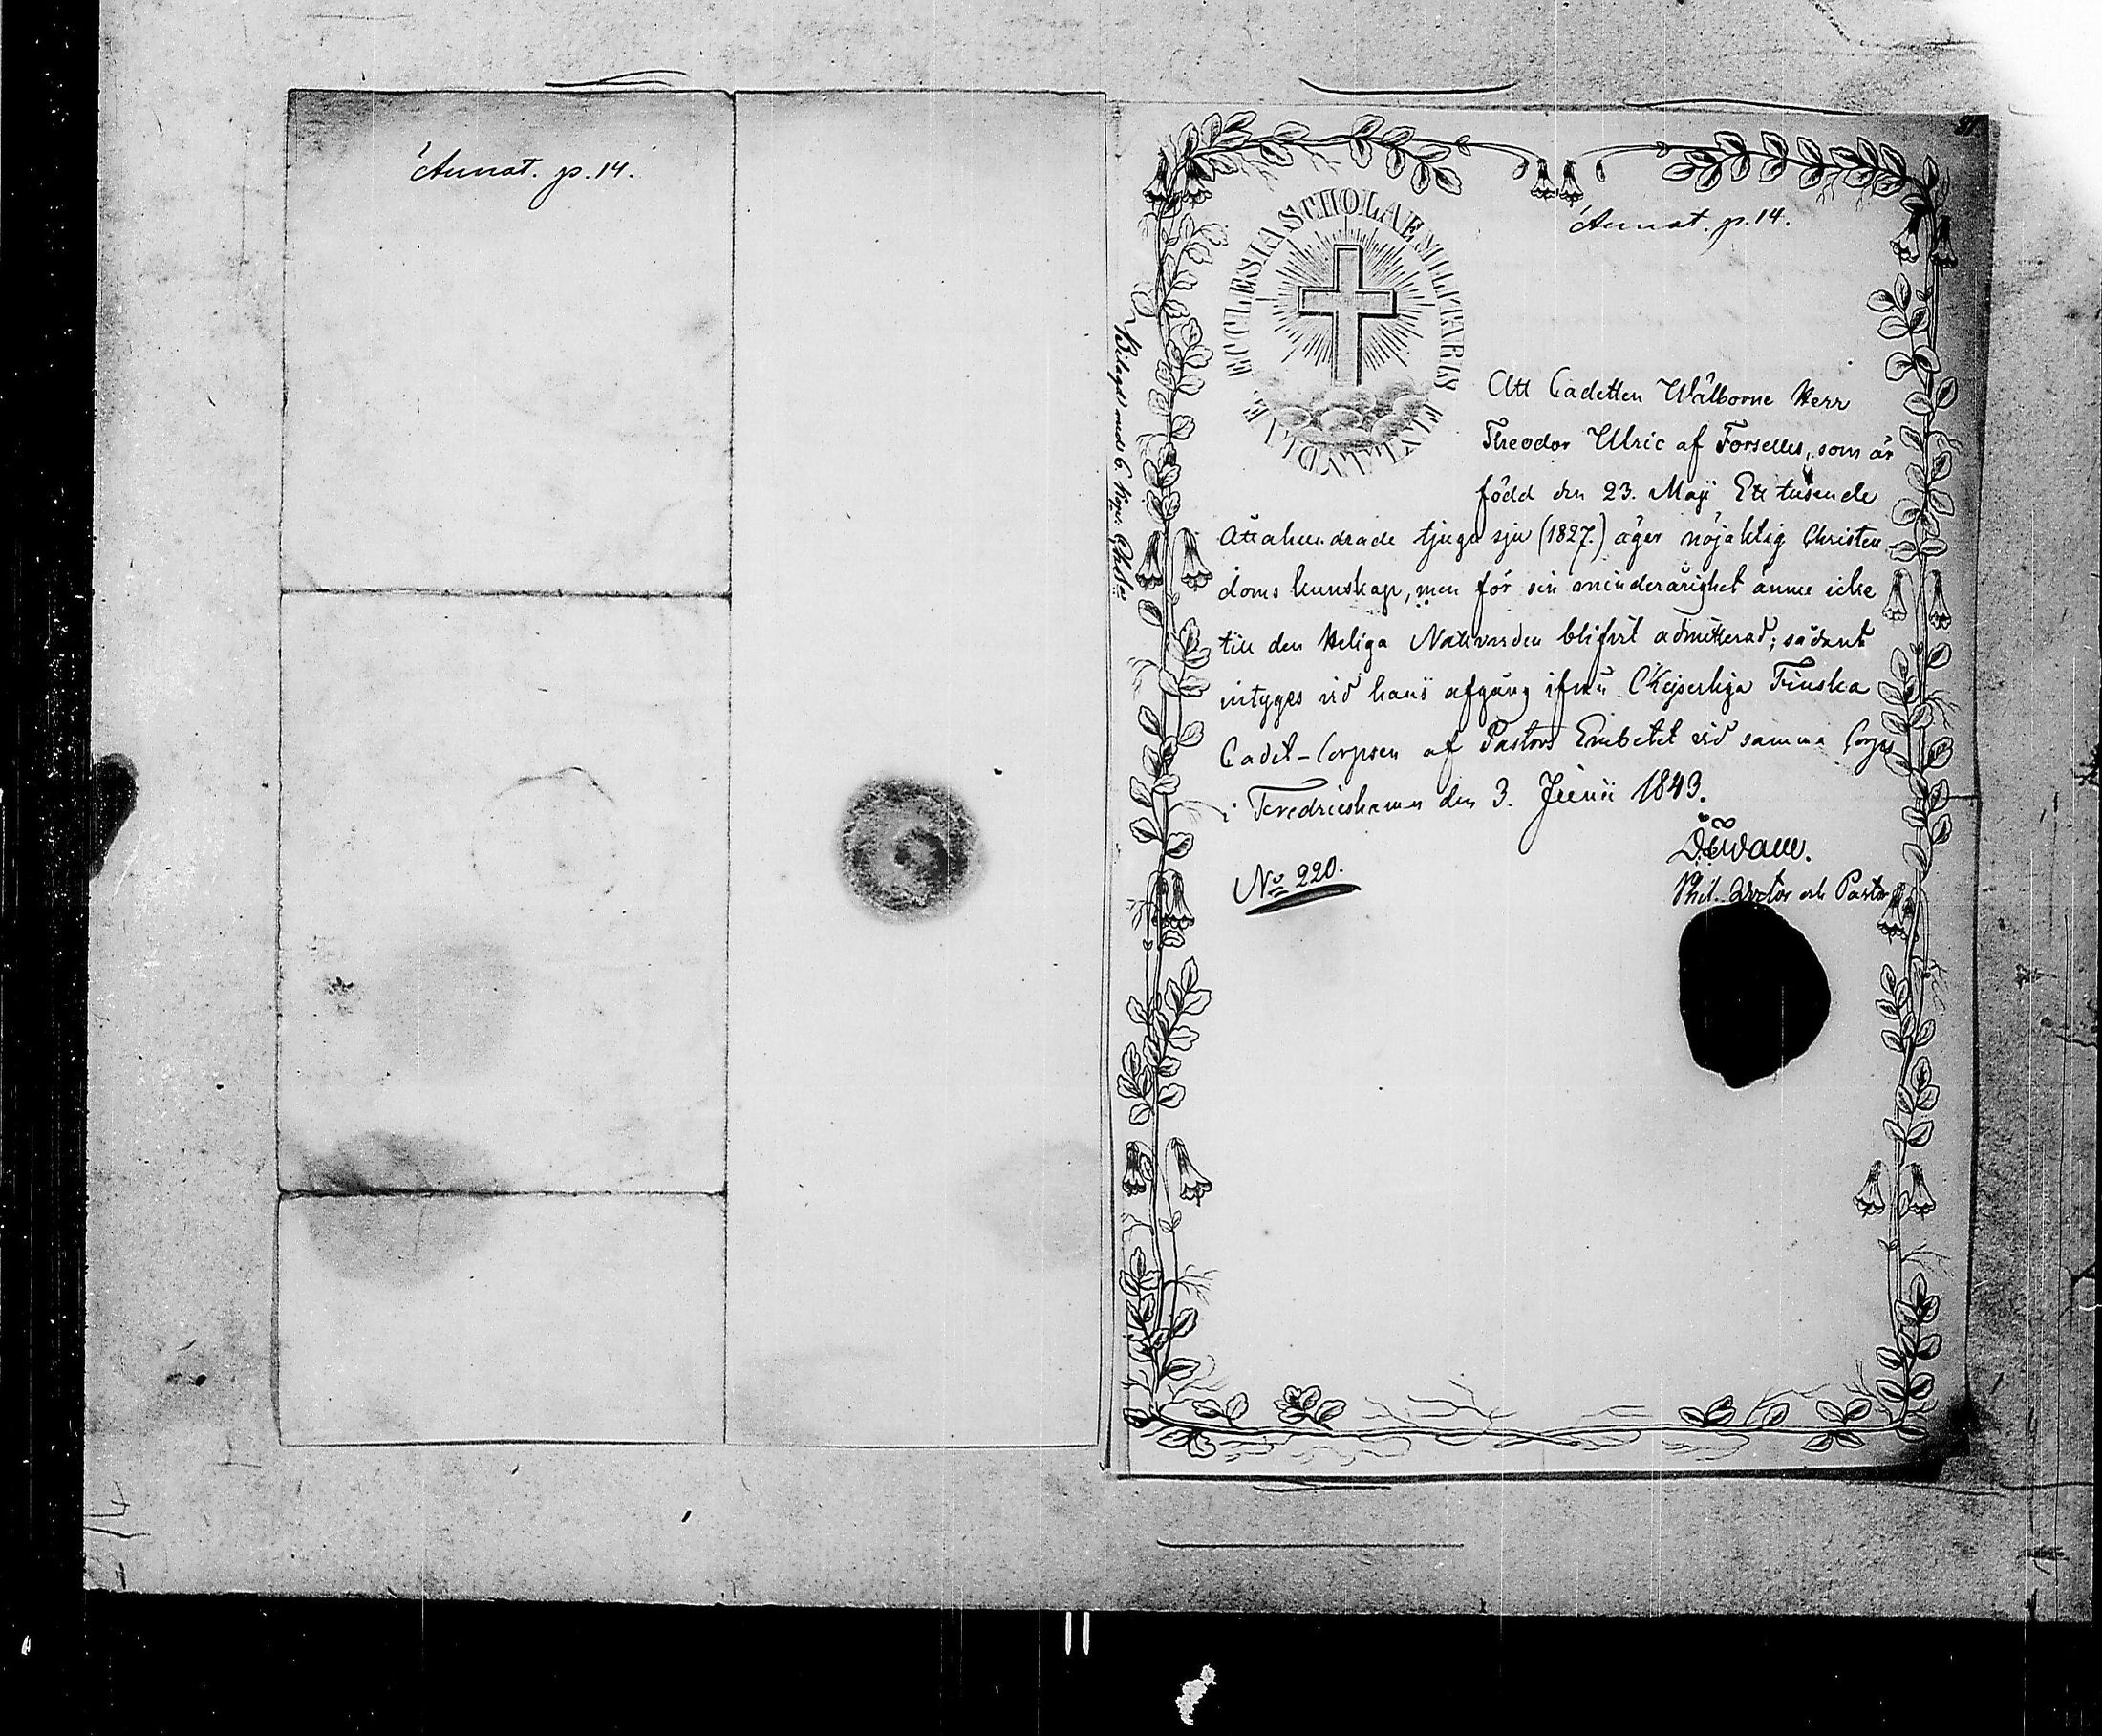 Annot. p. 14.
81
Annot. p. 14.
ECCLESIA SCHOLAE MILITARIS
Att Cadetten Wälborne Herr
Theodor Ulric af Forselles, som är
född den 23. Maji Ett tusende
åttahundrade tjugu sju (1827.) äger nöjaktig Christen-
doms kunskap, men för sin minderårighet ännu icke
till den Heliga Nattvarden blifvit admitterad; sådant
intyges vid hans afgång ifrån Kejserliga Finska
Cadet-Corpsen af Pastors Embetet vid samma Corps
i Fredricshamn den 3. Junii 1843.
Phil. Doctor och Pastor
No 220.
Belagdt med 6. Kop.
14